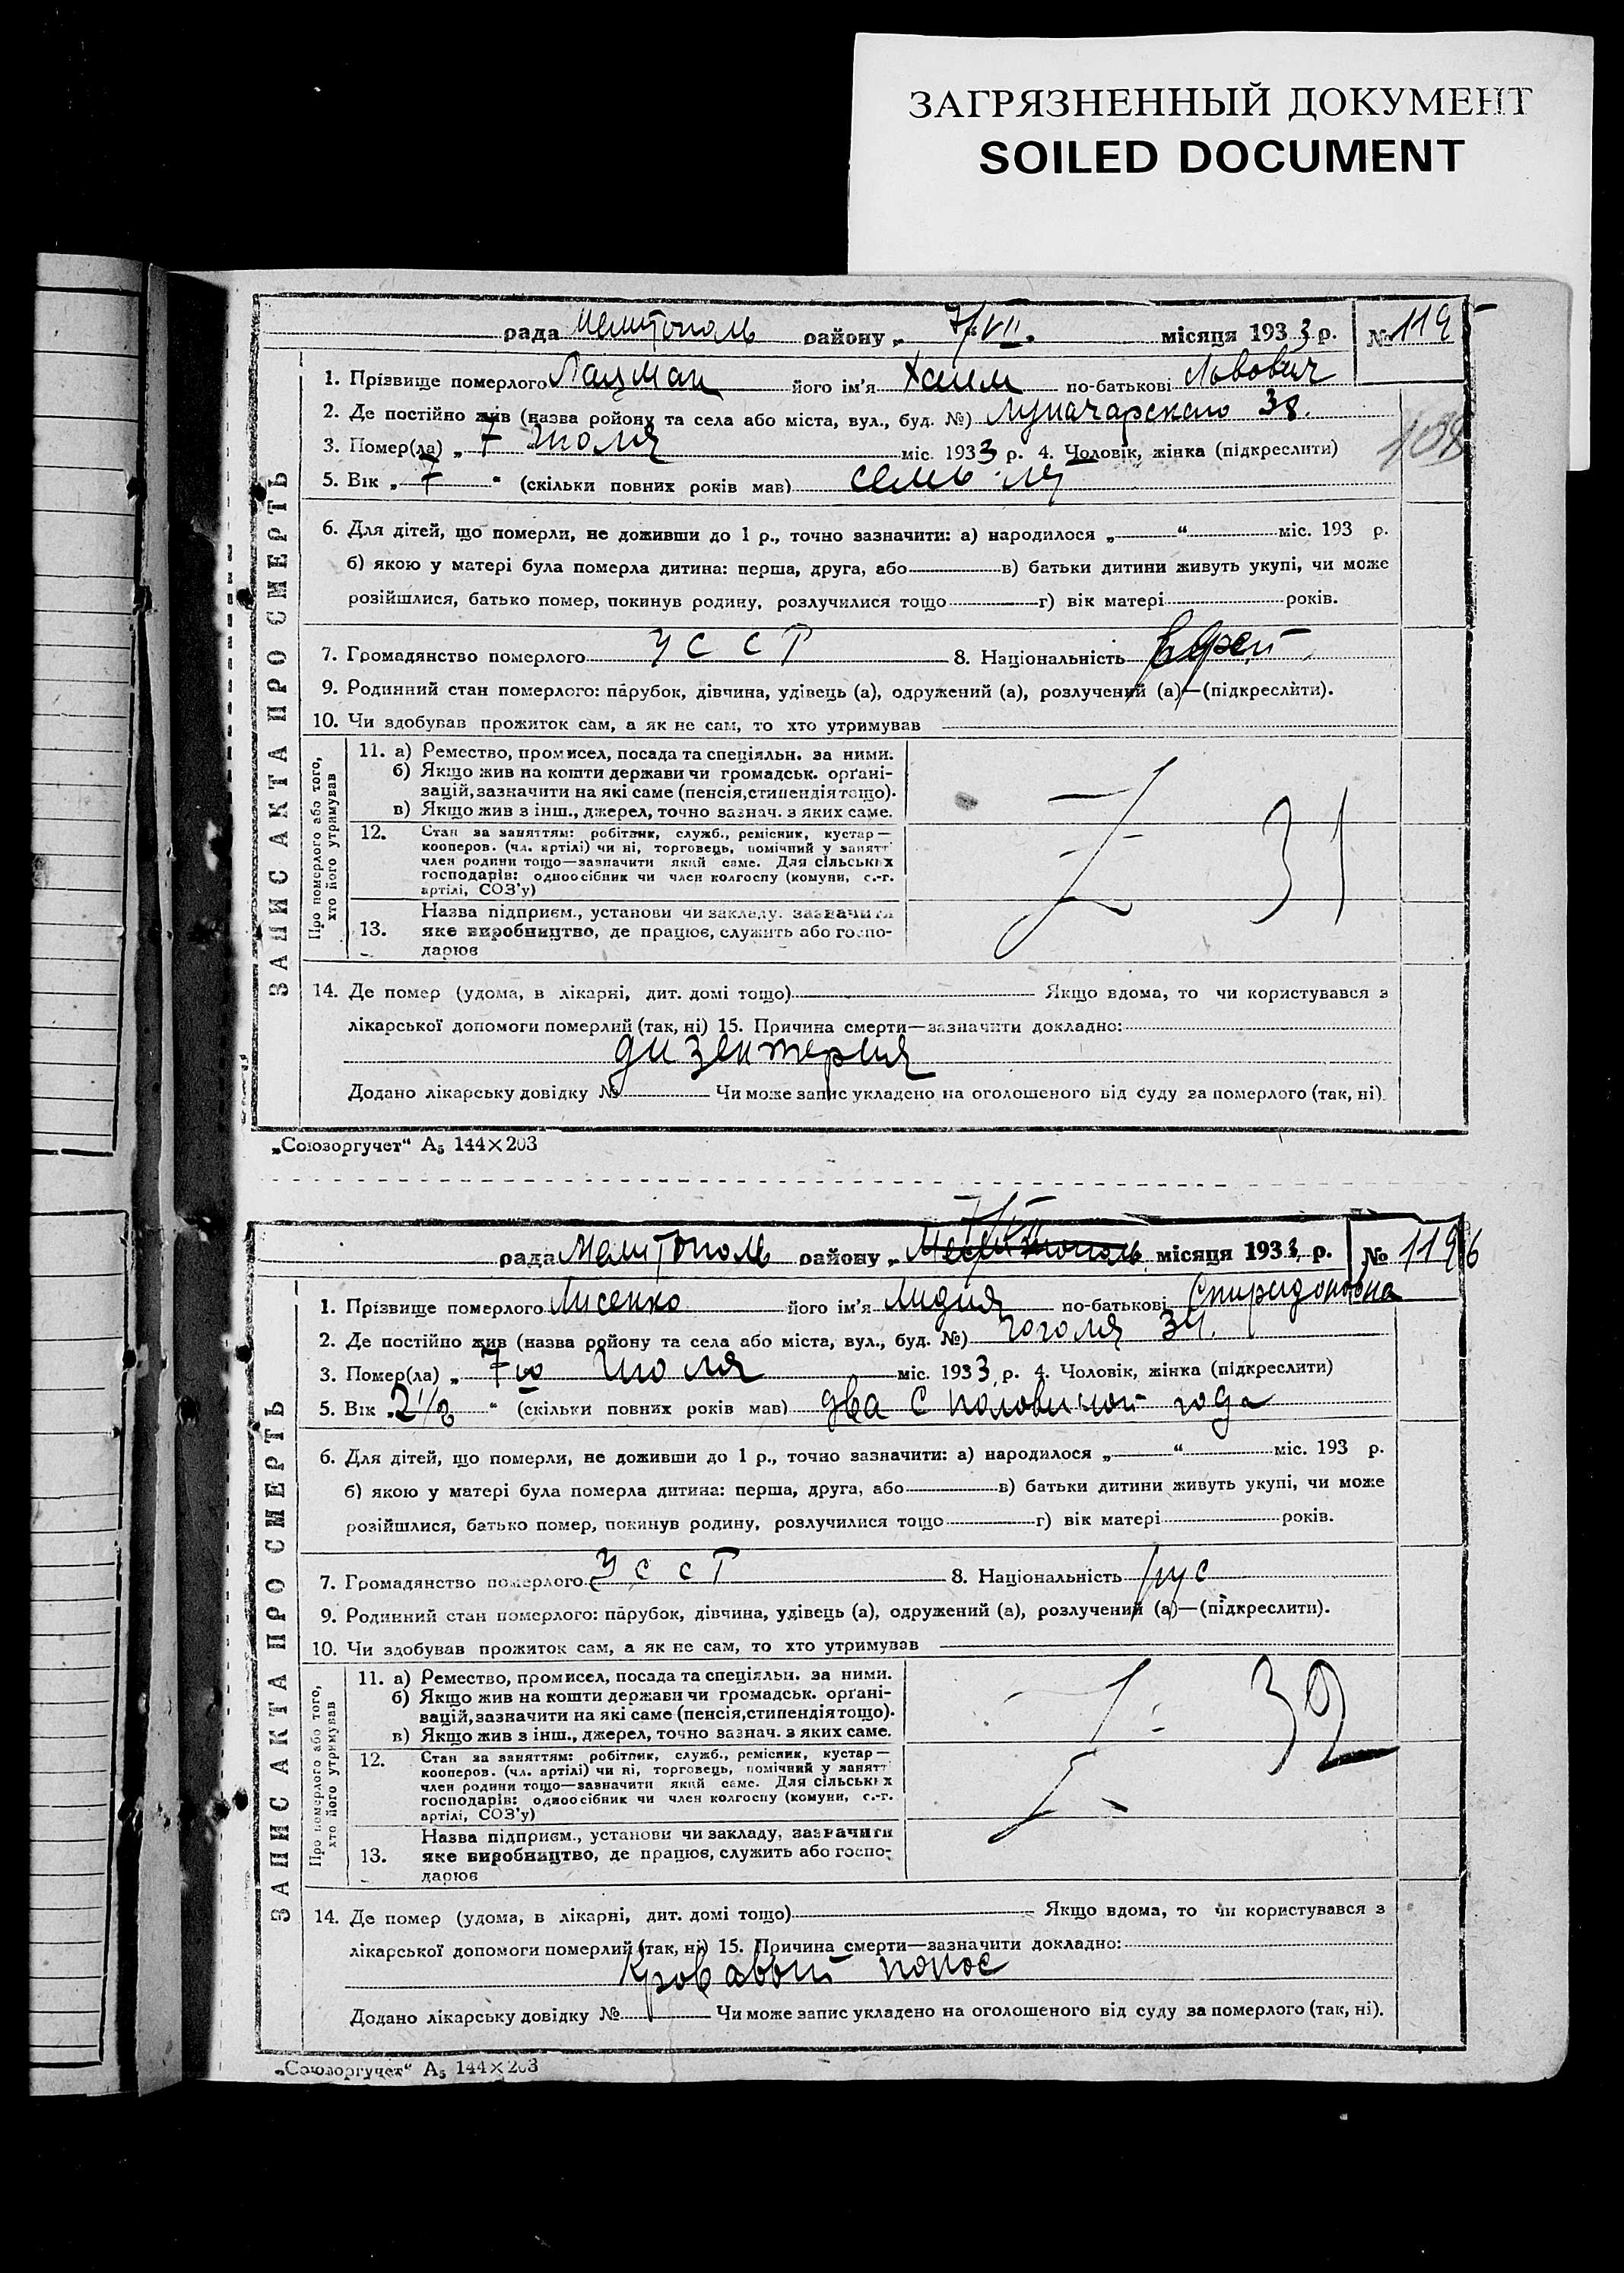 ЗАГРЯЗНЕННЫЙ ДОКУМЕНТ
SOILED DOCUMENT
рада Мелитополь району „ 7/VII. місяця 1933 р. № 1195
1. Прізвище померлого Лацман його ім’я Хаим по-батькові Львович
2. Де постійно жив (назва ройону та села або міста, вул., буд. №) Луначарского 38.
3. Помер(ла) „ 7 июля міс. 1933 р. 4. Чоловік, жінка (підкреслити)
5. Вік „ 7 “ (скільки повних років мав) семь лет
6. Для дітей, що померли, не доживши до 1 р., точно зазначити: а) народилося „ “ міс. 193 р.
б) якою у матері була померла дитина: перша, друга, або в) батьки дитини живуть укупі, чи може
розійшлися, батько помер, покинув родину, розлучилися тощо г) вік матері років.
7. Громадянство померлого УССР 8. Національність еврей
9. Родинний стан померлого: парубок, дівчина, удівець (а), одружений (а), розлучений (а)—(підкреслити).
10. Чи здобував прожиток сам, а як не сам, то хто утримував
ЗАПИС АКТА ПРО СМЕРТЬ
Про померлого або того, хто його утримував
11. а) Ремество, промисел, посада та спеціяльн. за ними.
б) Якщо жив на кошти держави чи громадськ. орґані-
зацій, зазначити на які саме (пенсія, стипендія тощо).
в) Якщо жив з інш., джерел, точно зазнач. з яких саме.
12. Стан за заняттям: робітник, служб., ремісник, кустар—
кооперов. (чл. артілі) чи ні, торговець, помічний у занятт
член родини тощо—зазначити який саме. Для сільських
господарів: одноосібник чи член колгоспу (комуни, с.-г.
артілі, СОЗ’у)
31
Назва підприєм., установи чи закладу, зазначити
13. яке виробництво, де працює, служить або госпо-
дарює
14. Де помер (удома, в лікарні, дит. домі тощо) Якщо вдома, то чи користувався з
лікарської допомоги померлий (так, ні) 15. Причина смерти—зазначити докладно:
дизентерия
Додано лікарську довідку № Чи може запис укладено на оголошеного від суду за померлого (так, ні).
„Союзоргучет“ А5 144×203
рада Мелитополь району „ Мелитополь 7/VII місяця 1933 р. № 1196
1. Прізвище померлого Лисенко його ім’я Лидия по-батькові Спиридоновна
2. Де постійно жив (назва ройону та села або міста, вул., буд. №) Гоголя 34.
3. Помер(ла) „ 7го июля міс. 1933 р. 4. Чоловік, жінка (підкреслити)
5. Вік „ 2 1/2 “ (скільки повних років мав) два с половиной года
6. Для дітей, що померли, не доживши до 1 р., точно зазначити: а) народилося „ “ міс. 193 р.
б) якою у матері була померла дитина: перша, друга, або в) батьки дитини живуть укупі, чи може
розійшлися, батько помер, покинув родину, розлучилися тощо г) вік матері років.
7. Громадянство померлого УССР 8. Національність рус
9. Родинний стан померлого: парубок, дівчина, удівець (а), одружений (а), розлучений (а)—(підкреслити).
10. Чи здобував прожиток сам, а як не сам, то хто утримував
ЗАПИС АКТА ПРО СМЕРТЬ
Про померлого або того, хто його утримував
11. а) Ремество, промисел, посада та спеціяльн. за ними.
б) Якщо жив на кошти держави чи громадськ. орґані-
зацій, зазначити на які саме (пенсія, стипендія тощо).
в) Якщо жив з інш., джерел, точно зазнач. з яких саме.
12. Стан за заняттям: робітник, служб., ремісник, кустар—
кооперов. (чл. артілі) чи ні, торговець, помічний у занятт
член родини тощо—зазначити який саме. Для сільських
господарів: одноосібник чи член колгоспу (комуни, с.-г.
артілі, СОЗ’у)
32
Назва підприєм., установи чи закладу, зазначити
13. яке виробництво, де працює, служить або госпо-
дарює
14. Де помер (удома, в лікарні, дит. домі тощо) Якщо вдома, то чи користувався з
лікарської допомоги померлий (так, ні) 15. Причина смерти—зазначити докладно:
Кровавый понос
Додано лікарську довідку № Чи може запис укладено на оголошеного від суду за померлого (так, ні).
„Союзоргучет“ А5 144×203